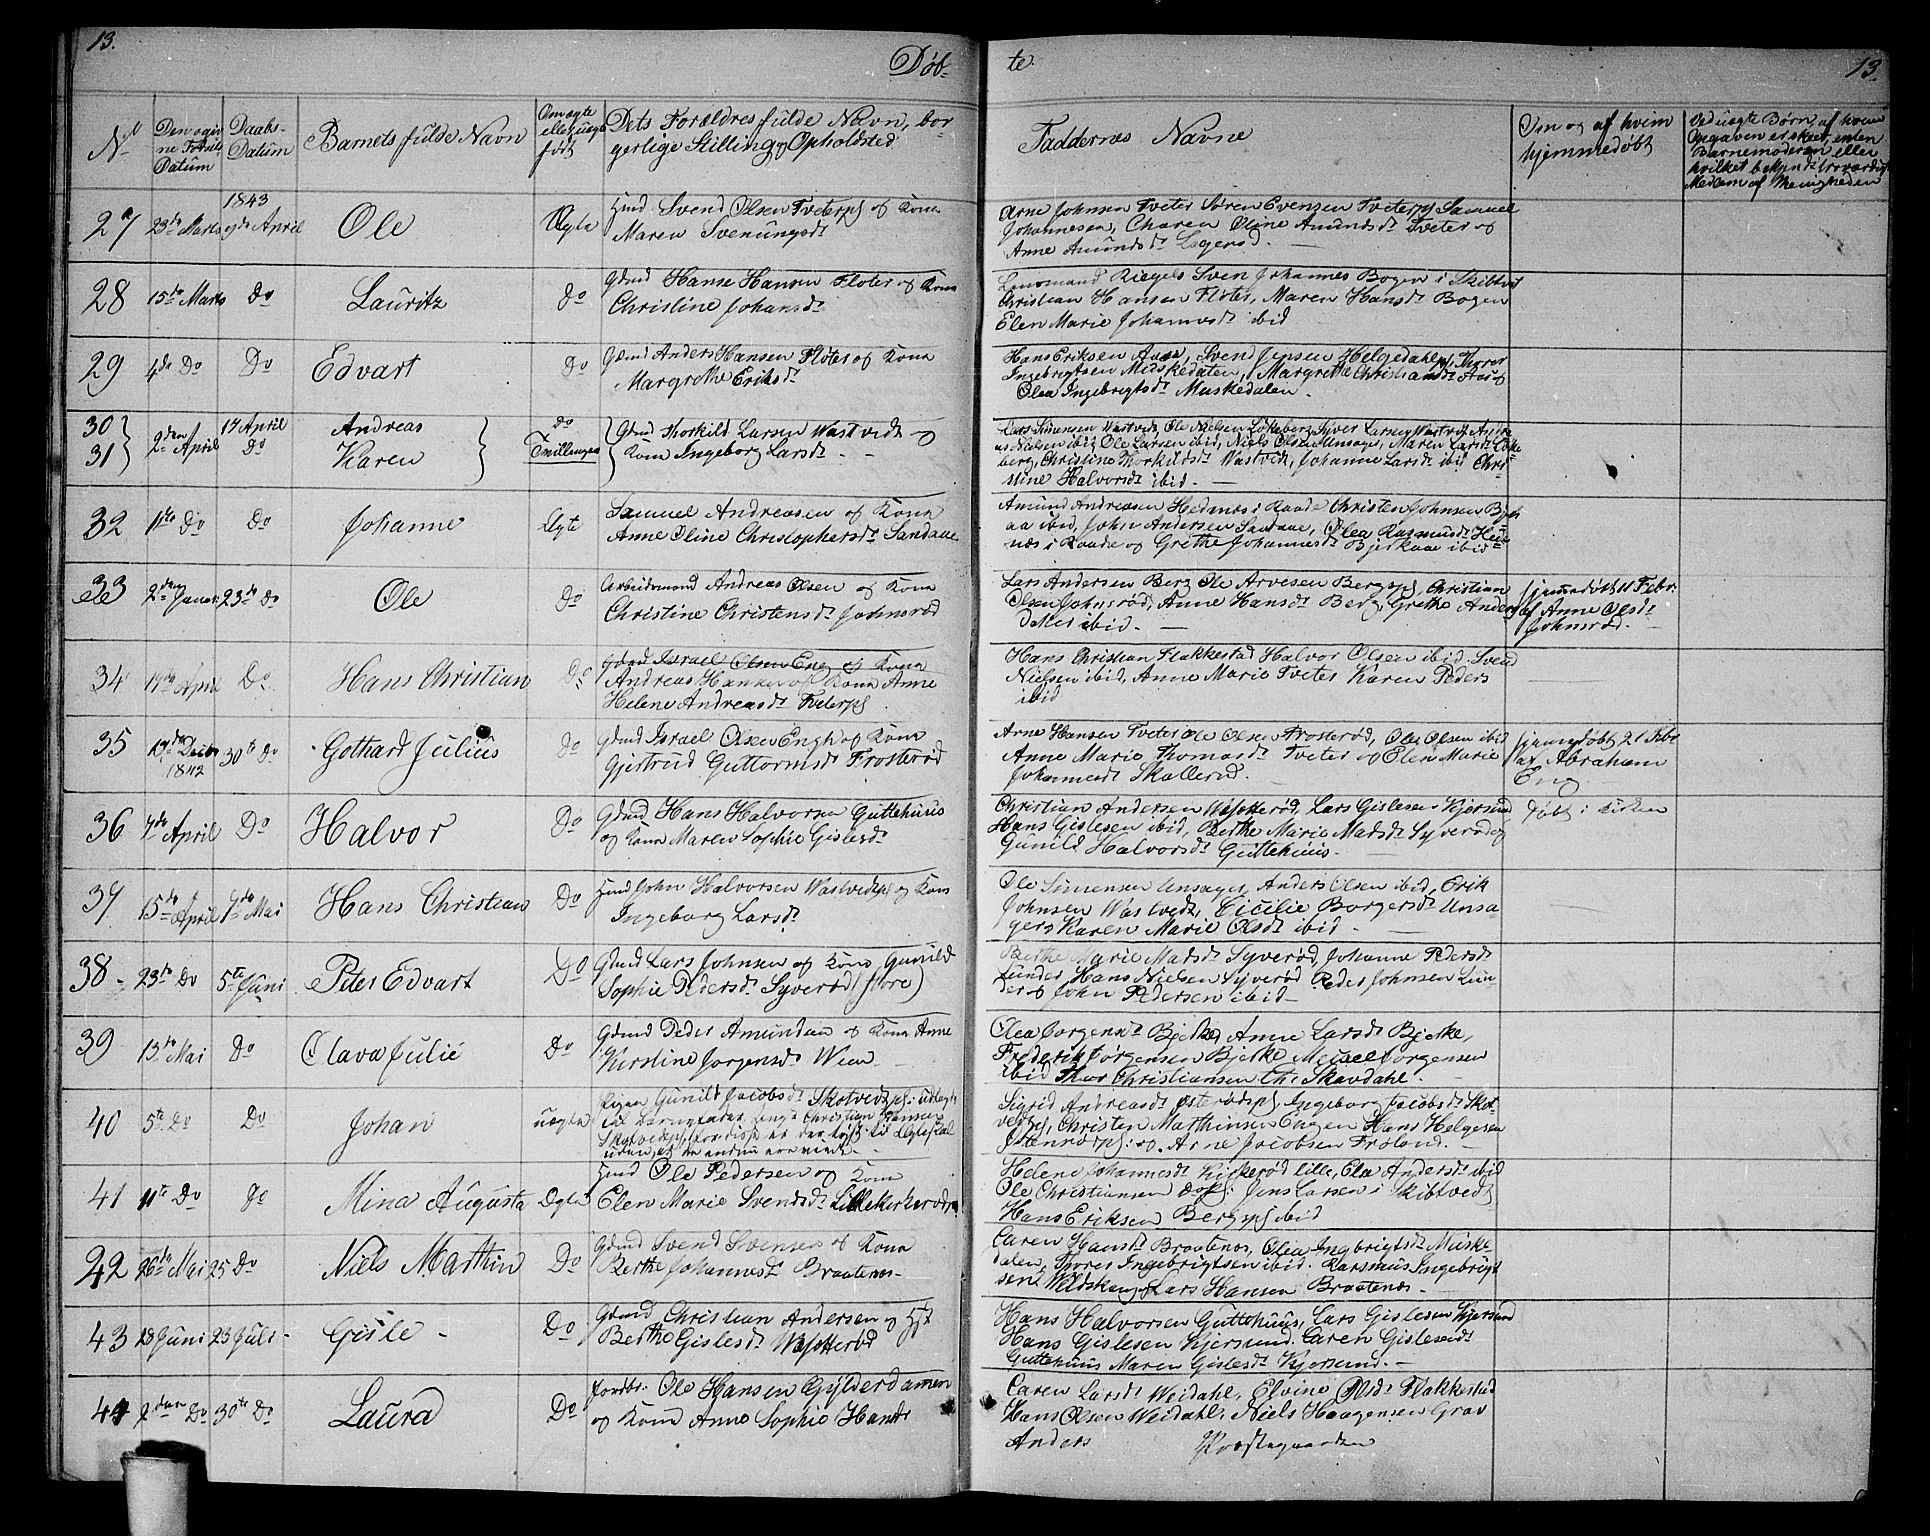 13.
Døb-
te.
13.
No
Den egive
ne Føds
Datum
Daabs-
Datum
Barnets fulde Navn
Om ægte
eller uægte
født
Dets Forældres fulde Navn, bor-
gerlige Stilling og Opholdsted
Faddernes Navne
Om og af hvem
hjemmedøbt
Ved uægte Børn af hvem
Opgaven er skeet, enten
Barnemoderen eller
hvilket bekjendt troværdigt
Medlem af Menigheden
27
23de Marts
1843
9de April
Ole
Ægte
Huusmd Svend Olsen Tveterpl og Kona
Maren Svenungsdr
Arne Johnsen Tveter Søren Evensen Tveterpl Samuel
Johannesen, Charen Oline Amundsdr Tveter og
Anne Amundsdr
28
15de Marts
Do
Lauritz
Do
Gdmd Hans Hansen Fløter og Kona
Christine Johansdr
Lensmand Riegels Sven Johannes Bogen i Skibtvet
Christian Hansen Fløter, Maren Hansdr Bogen
Elen Marie Johannesdr ibid
29
4de Do
Do
Edvart
Do
Gdmd Anders Hansen Fløter og Kona
Margrethe Eriksdr
Hans Eriksen Aaes, Svend Jensen Helgedahlpl, Thorer
Ingebrigtsen Muskedalen, Margrethe Christiansdr
Olea Ingebrigtsdr Muskedalen.
30
31
2den April
17 April
Do
Andreas
Karen
Do
Tvillinger
Gdmd Thorkild Larsen Wastvedt og
Kona Ingeborg Larsdr
Lars Simensen Wastvedt, Ole Nielsen Løkeberg, Syver Larsen Wastvet Andre
as Nielsen ibid, Ole Larsen ibid, Niels Olsen Unsager, Maren Larsdr Løke
berg, Christine Thorkildsdr Wastvedt, Johanne Larsdr ibid Chri-
stine Halvorsdr ibid.
32
11te Do
Do
Johanne
Ægte
Samuel Andreasen og Kona
Anne Oline Christophersdr Sandaae
Amund Andreasen Hednæs i Raade Christen Johnsen
aa ibid, John Andersen Sandaae, Olea Rasmusdr Hed-
næs i Raade og Grethe Johannesdr ibid
33
2den Januar
23de Do
Ole
Do
Arbeidsmand Andreas Olsen og Kona
Christine Christensdr Johnsrød
Lars Andersen Berg Ole Arvesen Bergspl, Christian
Olsen Johnsrød, Anne Hansdr Berg, Grethe Anders
datter ibid.
hjemmedøbt 11 Febr:
af Anne Olsdr
Johnsrød.
34
17de April
Do
Hans Christian
Do
Gdmd Israel Olsen Eng og Kona
Andreas Hansen og Kona Anne
Helene Andreasdr Tveterpl
Hans Christian Flakkestad Halvor Olsen ibid Svend
Nielsen ibid, Anne Marie Tveter Karen Peders
ibid
35
19de Decbr
1842
30te Do
Gothard Julius
Do
Gdmd Israel Olsen Engh og Kona
Gjertrud Guttormsdr Frosterød
Arne Hansen Tveter Ole Olsen Frosterød, Ole Olsen ibid
Anne Marie Thomasdr Tveter og Elen Marie
Johannesdr Skallerud.
hjemmedøbt 21 Febr
af Abraham
Eng
36
7de April
Do
Halvor
Do
Gdmd Hans Halvorsen Guttehuus
og Kona Maren Sophie Gislesdr
Christian Andersen Løssterød, Lars Gislesen Kjersund
Hans Gislesen ibid, Berthe Marie Madsdr Syverød og
Gunild Halvorsdr Guttehuus.
døbt i Kirken
37
15de April
7de Mai
Hans Christian
Do
Husmd John Halvorsen Wastvedtpl og Kona
Ingeborg Larsdr
Ole Simensen Unsager, Anders Olsen ibid, Erik
Johnsen Wastvedt, Cicilie Borgersdr Unsa-
ger Karen Marie Olsdr ibid
38
23de Do
5te Juni
Peter Edvart
Do
Gdmd Lars Johnsen og Kona Gunild
Sophie Pedersdr Syverød (store)
Berthe Marie Madsdr Syverød, Johanne Pedersdr
Lunder, Hans Nielsen Syverød Peder Johnsen Lun-
der og John Pedersen ibid
39
13de Mai
Do
Olava Julie
Do
Gdmd Peder Amundsen og Kona Anne
Kirstine Jørgensdr Wien
Olea Jørgensdr Bjerke, Anne Larsdr Bjerke,
Frederik Jørgensen Bjerke Meisel Jørgensen
ibid Thor Christiansen Skavdahl.
40
5te Do
Do
Johan
uægte
Pigen Gunild Jacobsdr Skotvedtpl: udlagt
til Barnefader Ungk Christian Hansen
Skotvedtpl,
Sigrid Andreasdr Ingeborg Jacobsdr Skot-
vedtpl, Christen Mathisen Engen Hans Helgesen
Stenrødpl: og Arne Jacobsen Frøland.
41
11te Do
Do
Mina Augusta
Ægte
Husmd Ole Pedersen og Kona
Elen Marie Svendsdr Lillekirkerød
Helene Johannesdr Kirkerød lille, Elea Andersdr ibid
Ole Christiansen Jens Larsen i Skibtvedt
Hans Eriksen Bergspl ibid
42
26de Mai
25 Do
Niels Mathin
Do
Gdmd Svend Svensen og Kona
Berthe Johannesdr Braatenes
Caren Hansdr Braatenes, Olea Ingebrigtsdr Muske-
dalen, Thorer Ingebrigtsen ibid. Rasmus Ingebrigt
sen Lars Hansen Braatenes
43
18 Juni
23 Juli
Gisle
Do
Gdmd Christian Andersen og Hst
Berthe Gislesdr Løssterød
Hans Halvorsen Guttehuus, Lars Gislesen Kjersund
Hans Gislesen Kjersund. Caren Gislesdr
Guttehuus Maren Gislesdr Kjersund.
44
2den Do
30te Do
Laura
Do
Jordbr: Ole Hansen Gylderdammen
og Kona Anne Sophie Hansdr
Caren Larsdr Weidahl, Elvine Olsdr Flakkestad
Hans Olsen Weidahl, Niels Haagensen Grav
Anders Præstegaarden